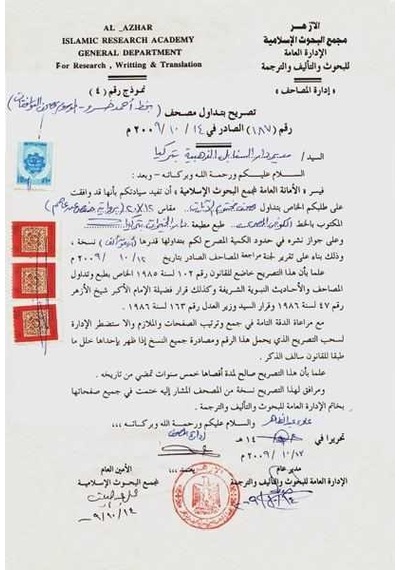 AL _AZHAR
ISLAMIC RESEARCH ACADEMY
GENERAL DEPARTMENT
For Research , Writting & Translation
الأزهر
مجمع البحوث الإسلامية
الإدارة العامة
للبحوث والتأليف والترجمة
« إدارة المصاحف »
نموذج رقم ( ٤ )
تصريح بتداول مصحف
رقم ( ١٨٧ ) الصادر في ١٤ / ١٠ / ٢٠٠٩ م
السيد / مدير دار السنابل الذهبية بتركيا
السلام عليكم ورحمة الله وبركاته – وبعد :
فيسر « الأمانة العامة لمجمع البحوث الإسلامية » أن تفيد سيادتكم بأنها قد وافقت
على طلبكم الخاص بتداول مقاس
المكتوب بخط طبع مطبعة
وعلى جواز نشره في حدود الكمية المصرح لكم بتداولها قدرها نسخة ،
وذلك بناء على تقرير لجنة مراجعة المصاحف الصادر بتاريخ ١٢ / ١٠ / ٢٠٠٩ م
علما بأن هذا التصريح خاضع للقانون رقم ١٠٢ لسنة ١٩٨٥ الخاص بطبع وتداول
المصاحف والأحاديث النبوية الشريفة وكذلك قرار فضيلة الإمام الأكبر شيخ الأزهر
رقم ٤٧ لسنة ١٩٨٦ وقرار السيد وزير العدل رقم ١٦٣ لسنة ١٩٨٦ .
مع مراعاة الدقة التامة في جمع وترتيب الصفحات والملازم وإلا ستضطر الإدارة
لسحب التصريح الذي يحمل هذا الرقم ومصادرة جميع النسخ إذا ظهر بإحداها خلل ما
طبقا للقانون سالف الذكر .
علما بأن هذا التصريح صالح لمدة أقصاها خمس سنوات تمضي من تاريخه .
ومرافق لهذا التصريح نسخة من المصحف المشار إليه ختمت في جميع صفحاتها
بخاتم الإدارة العامة للبحوث والتأليف والترجمة .
والسلام عليكم ورحمة الله وبركاته ،،،
تحريرا في ١٤ هـ
٢٠٠٩ / ١٠ / ١٢ م
مدير عام
الإدارة العامة للبحوث والتأليف والترجمة
الأمين العام
لمجمع البحوث الإسلامية